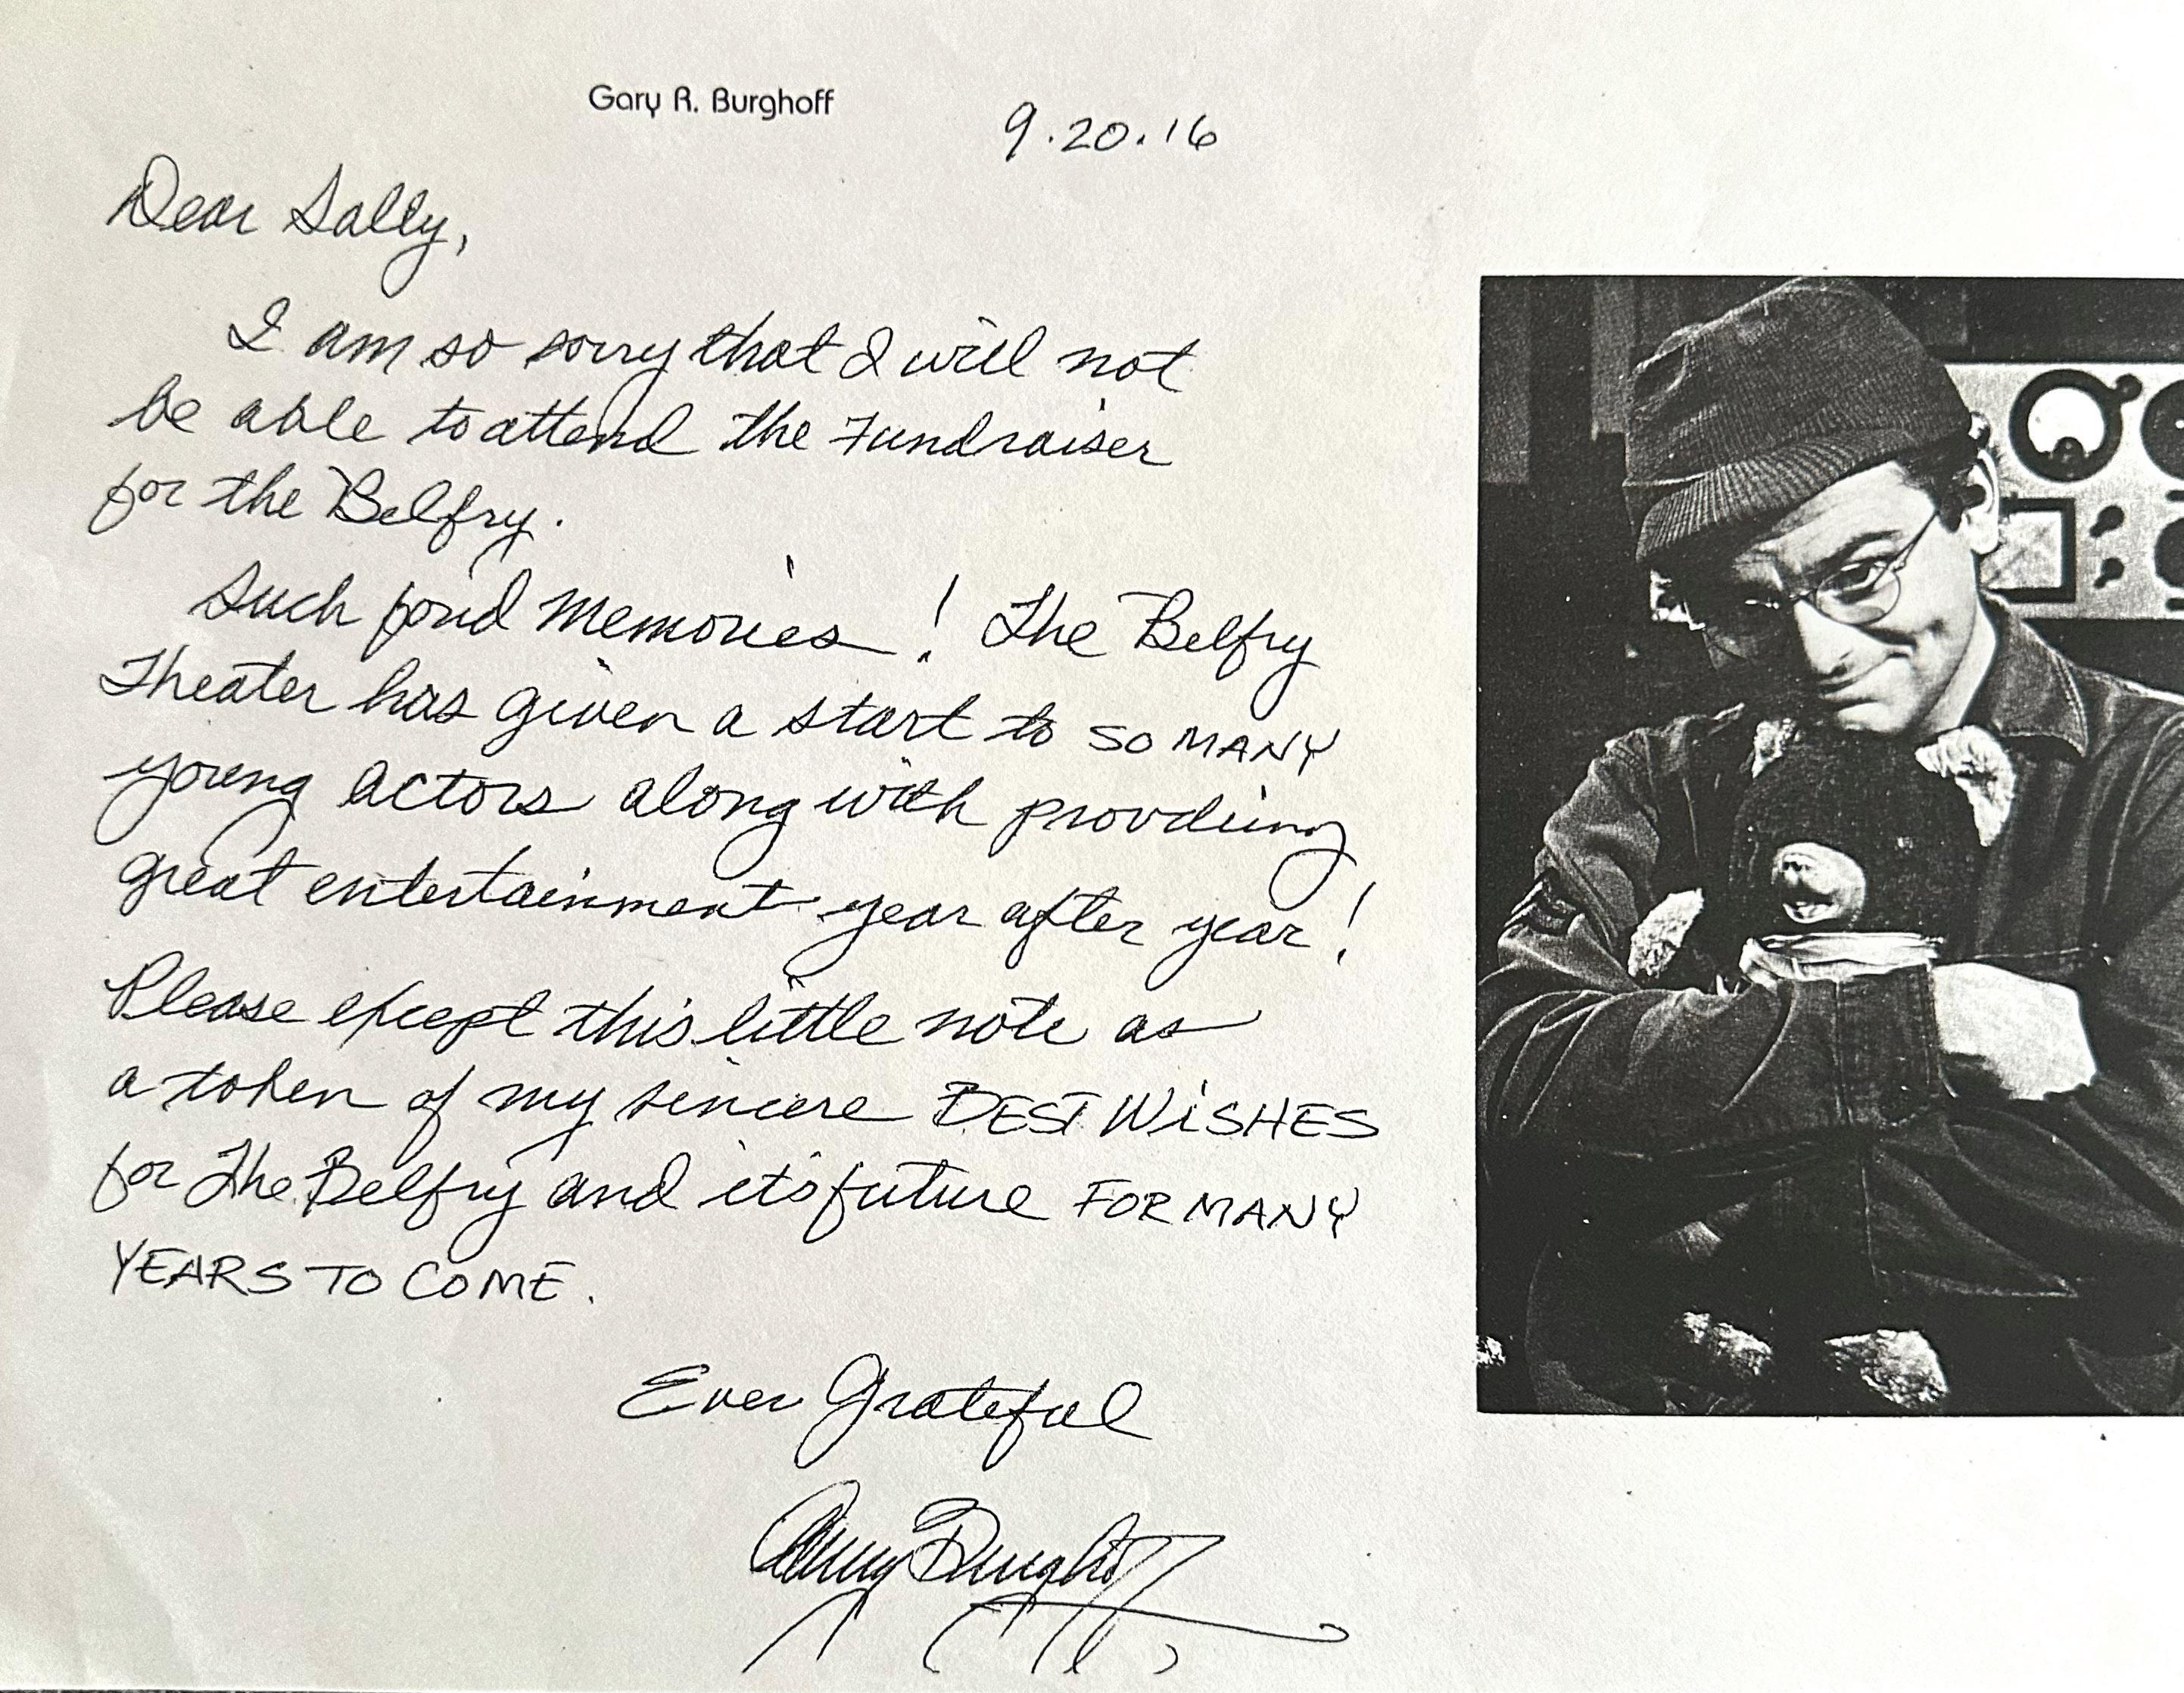 Gary R. Burghoff
9.20.16
Dear Sally,
I am so sorry that I will not
be able to attend the Fundraiser
for the Belfry.
Such fond Memories! The Belfry
Theater has given a start to SO MANY
young actors along with provding
great entertainment year after year!
Please except this little note as
a token of my sincere BEST WiSHES
for The Belfry and its future FOR MANY
YEARS TO COME.
Ever Grateful
Gary Burghoff